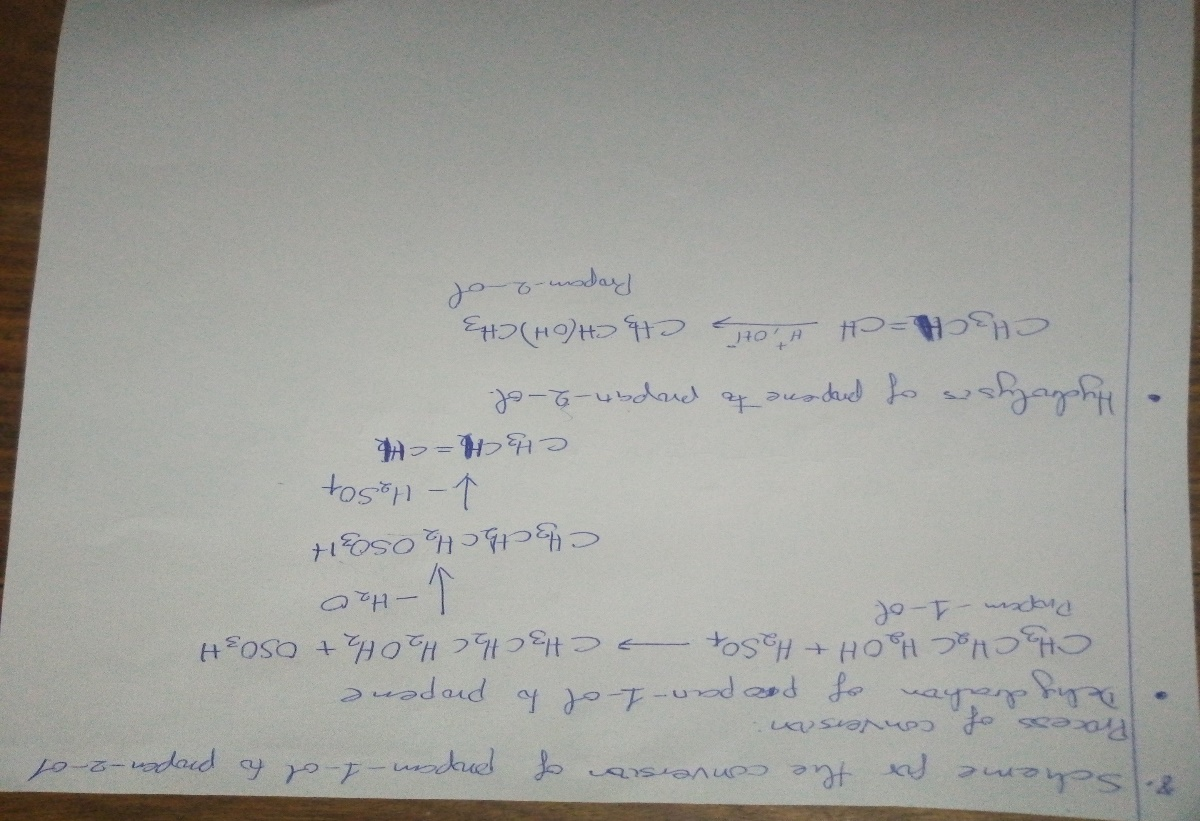 8. Scheme for the conversion of propan-1-ol to propan-2-ol
Process of conversion:
• Dehydration of propan-1-ol to propene
CH₃CH₂CH₂OH + H₂SO₄ → CH₃CH₂CH₂OH₂ + OSO₃H
Propan-1-ol
↓ -H₂O
CH₃CH₂CH₂OSO₃H
↓ -H₂SO₄
CH₃CH=CH₂
• Hydrolysis of propene to propan-2-ol.
CH₃CH=CH H⁺,OH⁻ → CH₃CH(OH)CH₃
Propan-2-ol